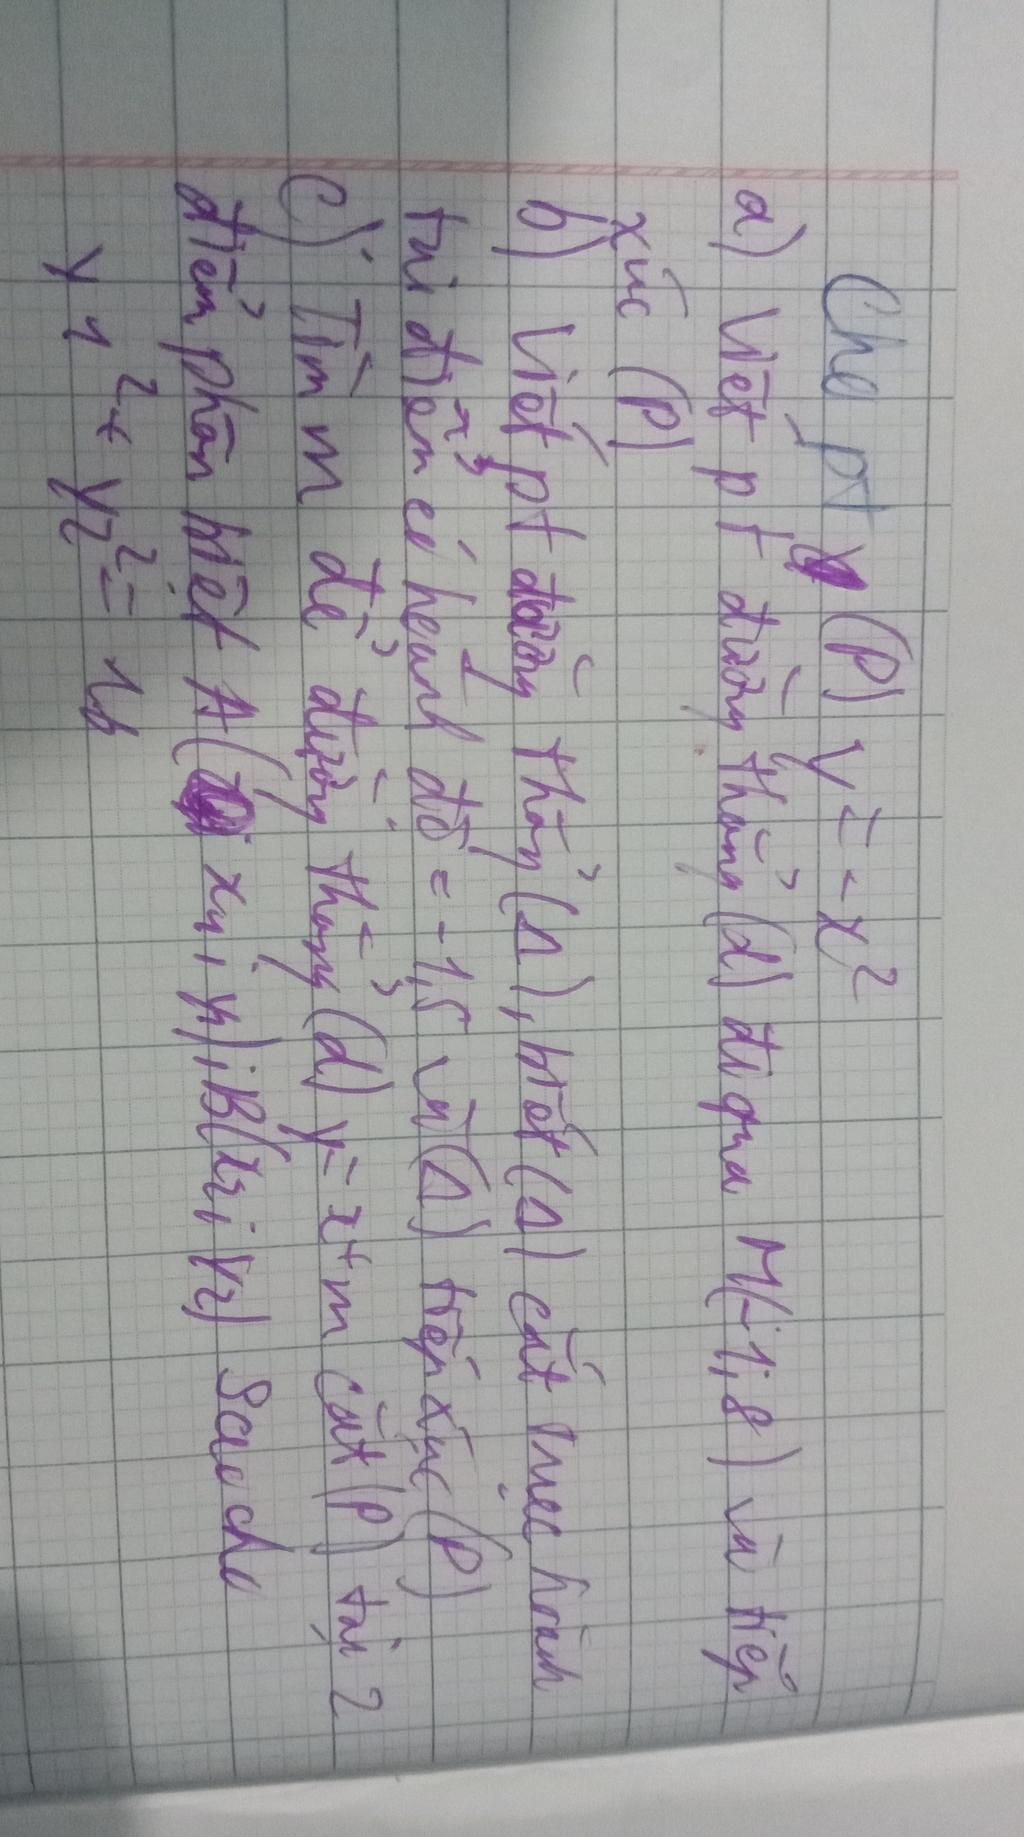 Cho pt (P) y = - x²
a) Viết pt đường thẳng (d) đi qua M(-1; 8) và tiếp
xúc (P)
b) Viết pt đường thẳng (Δ), biết (Δ) cắt trục hoành
tại điểm có hoành độ = -1,5 và (Δ) tiếp xúc (P)
c) Tìm m để đường thẳng (d) y = x + m cắt (P) tại 2
điểm phân biệt A( x1; y1); B(x2; y2) Sao cho
y1² + y2² = 16